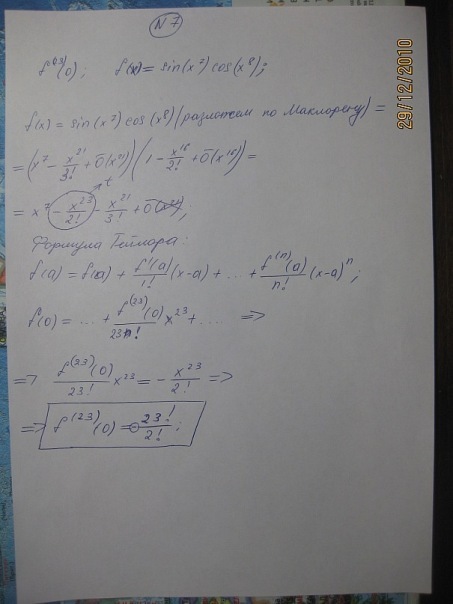 N 7
f⁽²³⁾(0); f(x) = sin(x⁷) cos(x⁸);
f(x) = sin(x⁷) cos(x⁸) (разложем по Маклорену) =
= (x⁷ - x²¹/3! + ō(x²¹)) (1 - x¹⁶/2! + ō(x¹⁶)) =
= x⁷ - x²³/2! - x²¹/3! + ō(x²¹);
Формула Тейлора:
f(a) = f(a) + f'(a)/1! (x-a) + ... + f⁽ⁿ⁾(a)/n! (x-a)ⁿ;
f(0) = ... + f⁽²³⁾(0)/23! x²³ + ... =>
=> f⁽²³⁾(0)/23! x²³ = - x²³/2! =>
=> f⁽²³⁾(0) = - 23!/2! ;
29/12/2010